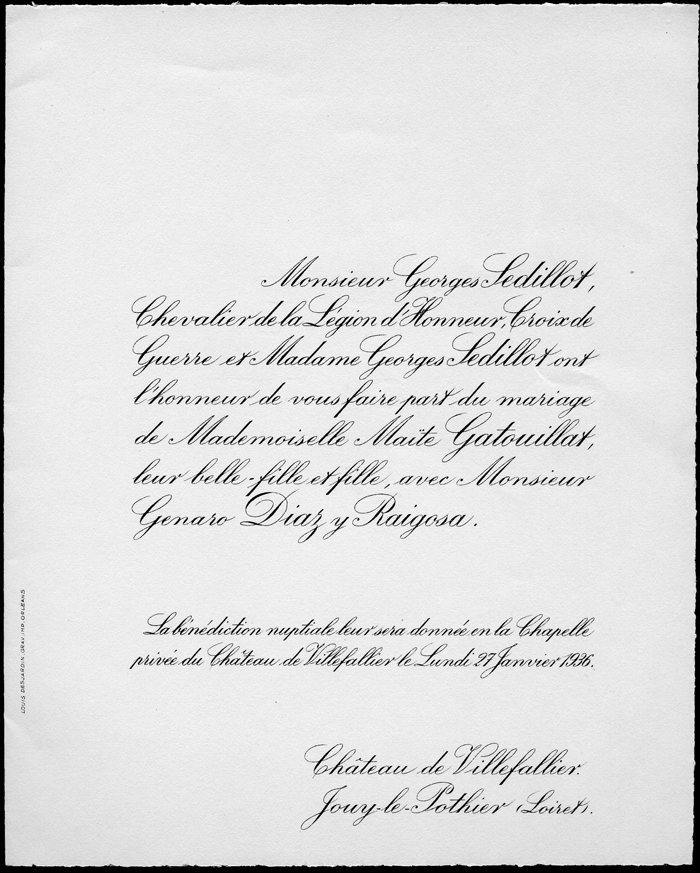 Monsieur Georges Sedillot,
Chevalier de la Légion d'Honneur, Croix de
Guerre et Madame Georges Sedillot ont
l'honneur de vous faire part du mariage
de Mademoiselle Maïté Gatouillat,
leur belle-fille et fille, avec Monsieur
Genaro Diaz y Raigosa.
La bénédiction nuptiale leur sera donnée en la Chapelle
privée du Château de Villefallier le Lundi 27 Janvier 1936.
Château de Villefallier.
Jouy-le-Pothier (Loiret).
LOUIS DESJARDIN, GRAV. IMP. ORLÉANS